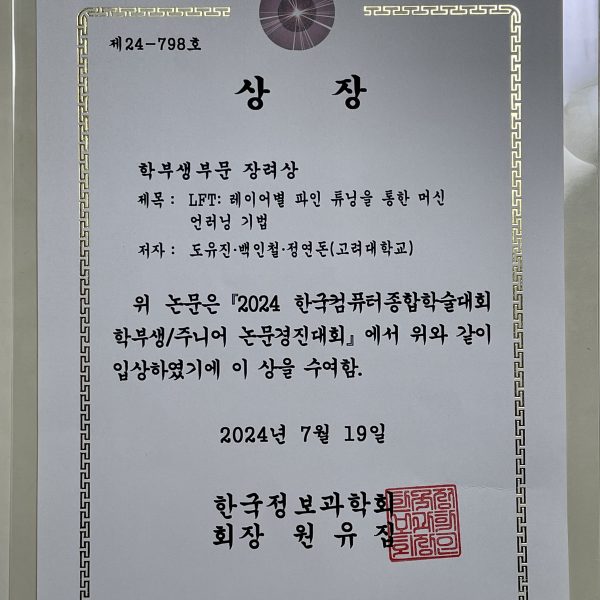 제24-798호
상 장
학부생부문 장려상
제목 : LFT: 레이어별 파인 튜닝을 통한 머신
언러닝 기법
저자 : 도유진·백인철·정연돈(고려대학교)
위 논문은 『2024 한국컴퓨터종합학술대회
학부생/주니어 논문경진대회』에서 위와 같이
입상하였기에 이 상을 수여함.
2024년 7월 19일
한국정보과학회
회장 원유집